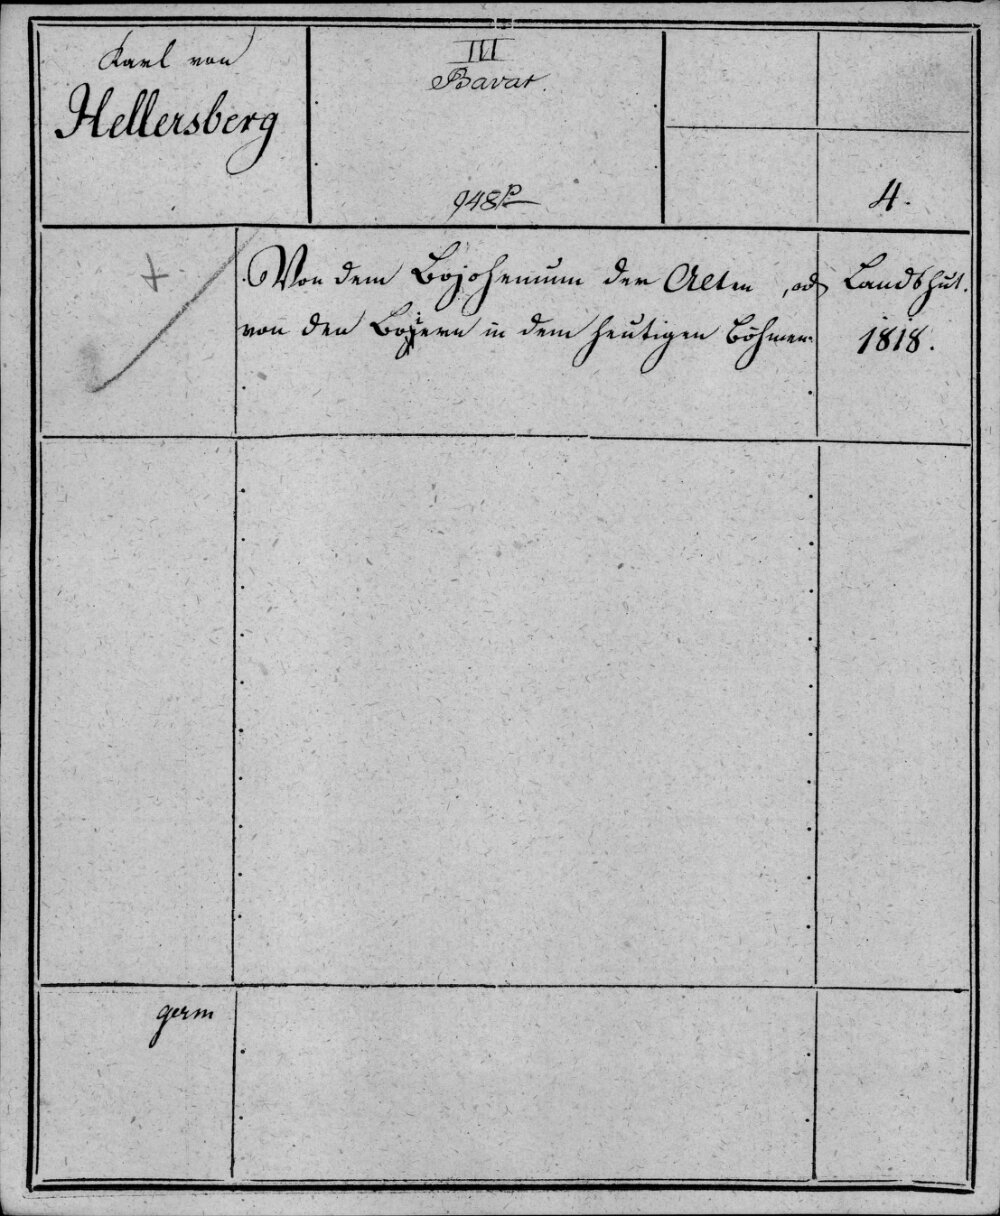 Karl von
Hellersberg
III
Bavar.
948p
4.
Von dem Bojohemum der Alten, od
von den Bojern in dem heutigen Böhmen.
Landshut.
1818.
germ